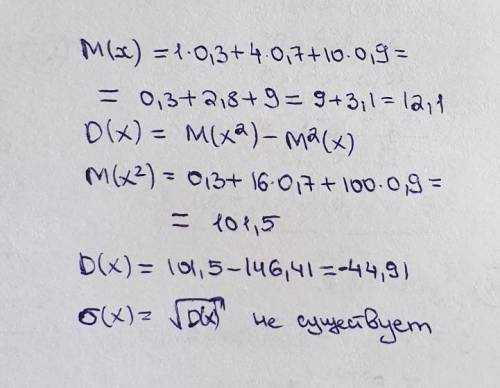 M(x) = 1·0,3+4·0,7+10·0,9=
= 0,3+2,8+9=9+3,1=12,1
D(x) = M(x²)-M²(x)
M(x²) = 0,3+16·0,7+100·0,9=
= 101,5
D(x) = 101,5-146,41=-44,91
σ(x) = √D(x) не существует